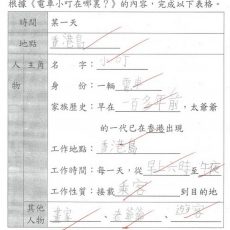 根據《電車小叮在哪裏？》的內容，完成以下表格。
時間 某一天
地點 香港島
人物 主角 名字：小叮
身份：一輛電車
家族歷史：早在一百多年前，太爺爺
的一代已在香港出現
工作地點：香港島
工作時間：每一天，從早上六時至午夜
工作性質：接載乘客到目的地
其他人物 老爺爺、遊客